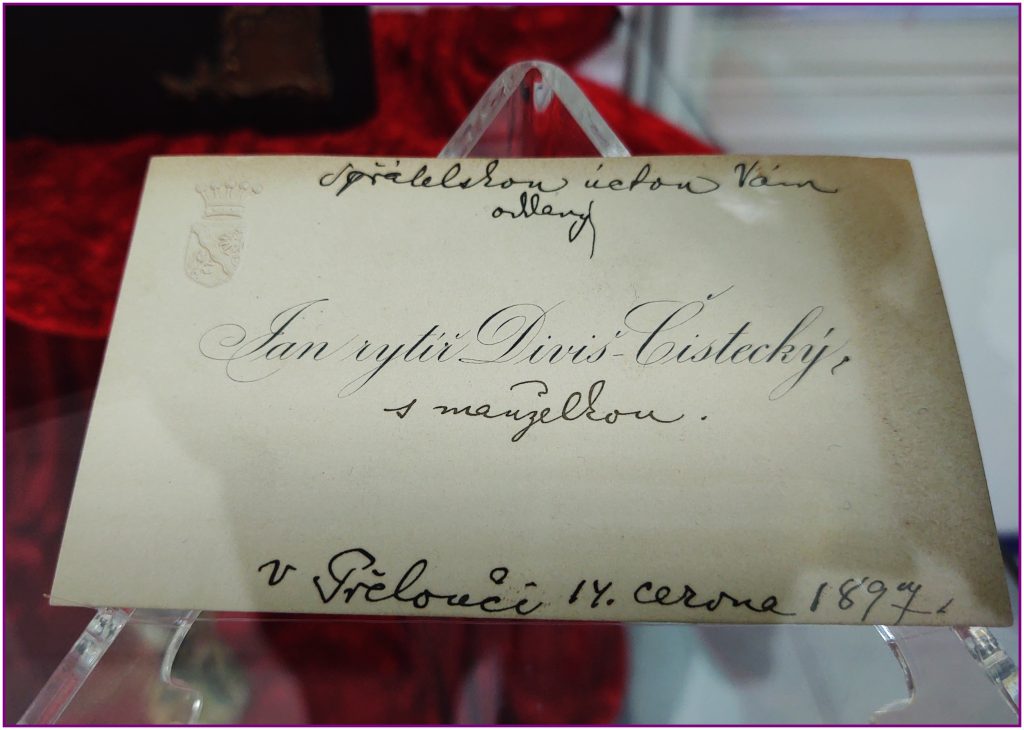 S přátelskou úctou Vám
oddaný
Jan rytíř Diviš-Čistecký,
s manželkou.
v Přelouči 14. června 1897.